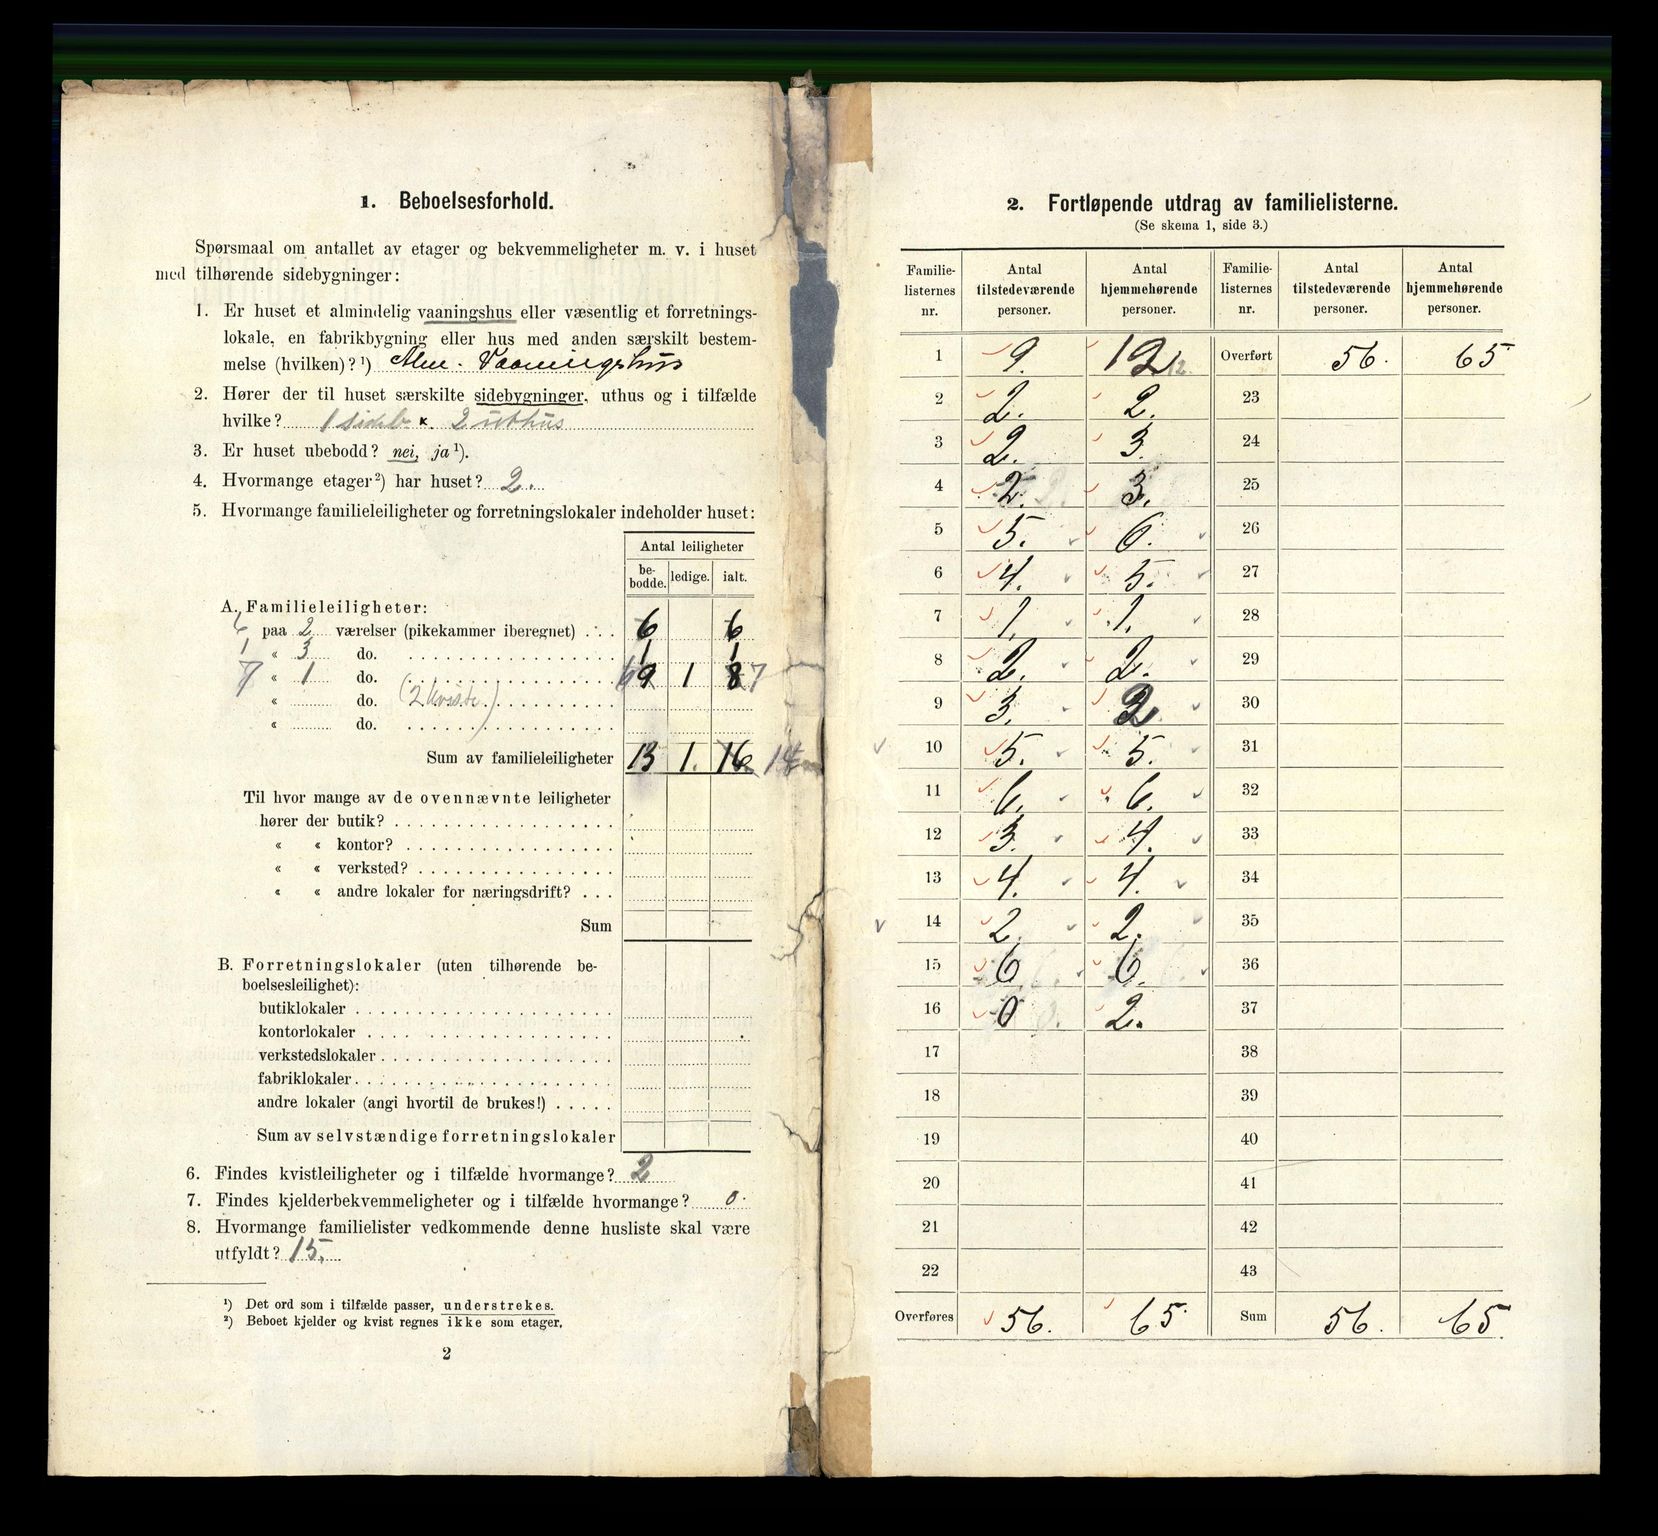 1. Beboelsesforhold.
Spørsmaal om antallet av etager og bekvemmeligheter m. v. i huset
med tilhørende sidebygninger:
1. Er huset et almindelig vaaningshus eller væsentlig et forretnings-
lokale, en fabrikbygning eller hus med anden særskilt bestem-
melse (hvilken)?¹) Alm. Vaaningshus
2. Hører der til huset særskilte sidebygninger, uthus og i tilfælde
hvilke? 1 sideb x. 2 uthus
3. Er huset ubebodd? nei, ja¹).
4. Hvormange etager²) har huset? 2.
5. Hvormange familieleiligheter og forretningslokaler indeholder huset:
Antal leiligheter
be-bodde. ledige. ialt.
A. Familieleiligheter:
6 paa 2 værelser (pikekammer iberegnet) . . . 6 6
1 « 3 do. 1 1
7 « 1 do. 6 9 1 8 7
« do. (2 kviste.)
« do.
Sum av familieleiligheter 13 1. 16 14
Til hvor mange av de ovennævnte leiligheter
hører der butik?
« « kontor?
« « verksted?
« « andre lokaler for næringsdrift?
Sum
B. Forretningslokaler (uten tilhørende be-
boelsesleilighet):
butiklokaler
kontorlokaler
verkstedslokaler
fabriklokaler
andre lokaler (angi hvortil de brukes!)
Sum av selvstændige forretningslokaler
6. Findes kvistleiligheter og i tilfælde hvormange? 2
7. Findes kjelderbekvemmeligheter og i tilfælde hvormange? 0.
8. Hvormange familielister vedkommende denne husliste skal være
utfyldt? 15.
¹) Det ord som i tilfælde passer, understrekes.
²) Beboet kjelder og kvist regnes ikke som etager.
2
2. Fortløpende utdrag av familielisterne.
(Se skema 1, side 3.)
Familie-listernes nr. Antal tilstedeværende personer. Antal hjemmehørende personer. Familie-listernes nr. Antal tilstedeværende personer. Antal hjemmehørende personer.
1 9. 12 12. Overført 56. 65
2 2. 2. 23
3 2. 3. 24
4 2. 3. 25
5 5. 6. 26
6 4. 5. 27
7 1. 1. 28
8 2. 2. 29
9 3. 3 30
10 5. 5. 31
11 6. 6. 32
12 3. 4. 33
13 4. 4. 34
14 2. 2. 35
15 6 6. 36
16 0 2. 37
17 38
18 39
19 40
20 41
21 42
22 43
Overføres 56. 65. Sum 56. 65.